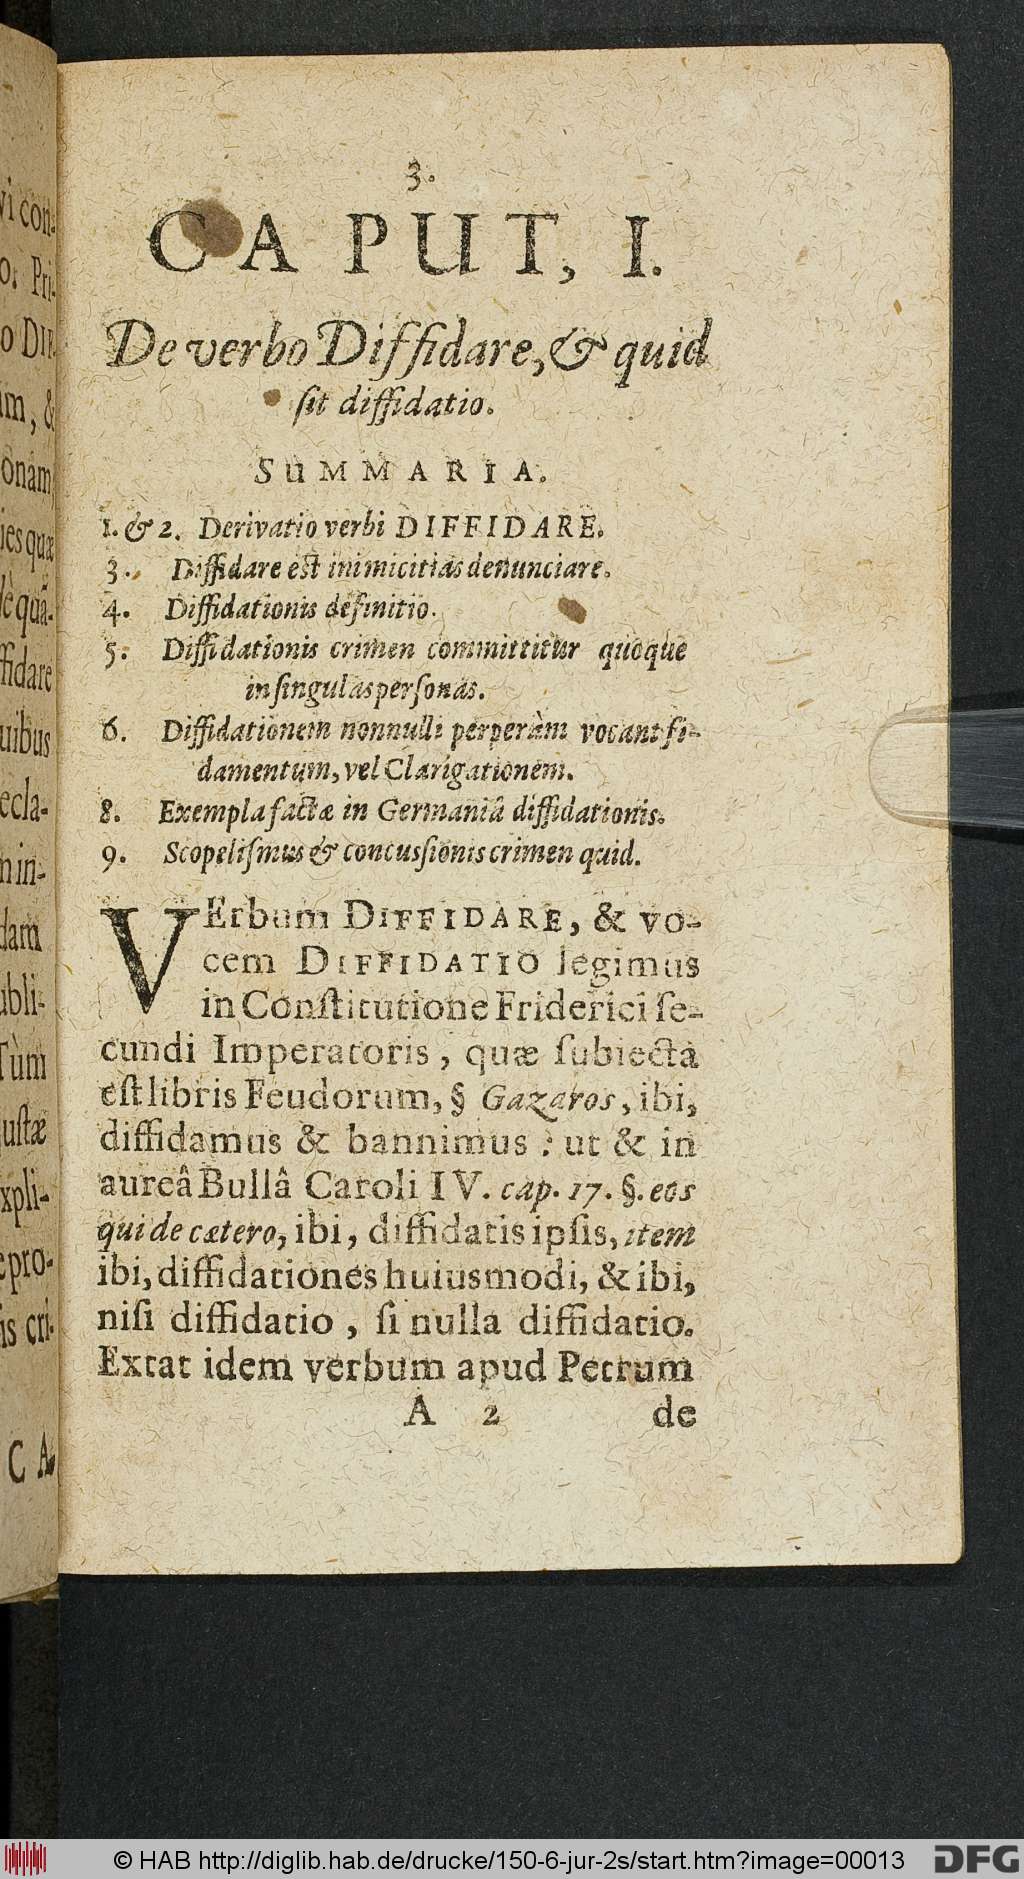 3.
CAPUT, I.
De verbo Diffidare, & quid
sit diffidatio.
SUMMARIA.
1. & 2. Derivatio verbi DIFFIDARE.
3. Diffidare est inimicitias denunciare.
4. Diffidationis definitio.
5. Diffidationis crimen committitur quoque
in singulas personas.
6. Diffidationem nonnulli perperàm vocant fi-
damentum, vel Clarigationem.
8. Exempla factæ in Germaniâ diffidationis.
9. Scopelismus & concussionis crimen quid.
VErbum DIFFIDARE, & vo-
cem DIFFIDATIO legimus
in Constitutione Friderici se-
cundi Imperatoris, quæ subiecta
est libris Feudorum, § Gazaros, ibi,
diffidamus & bannimus: ut & in
aureâ Bullâ Caroli IV. cap. 17. §. eos
qui de cætero, ibi, diffidatis ipsis, item
ibi, diffidationes huiusmodi, & ibi,
nisi diffidatio, si nulla diffidatio.
Extat idem verbum apud Petrum
A 2 de
vi con-
o: Pri-
o DIF-
im, &
onam
ies quæ
dè quã-
ffidare
uibus
ecla-
n in-
dam
ubli-
Tùm
ustæ
xpli-
epro-
is cri-
C A-
© HAB http://diglib.hab.de/drucke/150-6-jur-2s/start.htm?image=00013
DFG